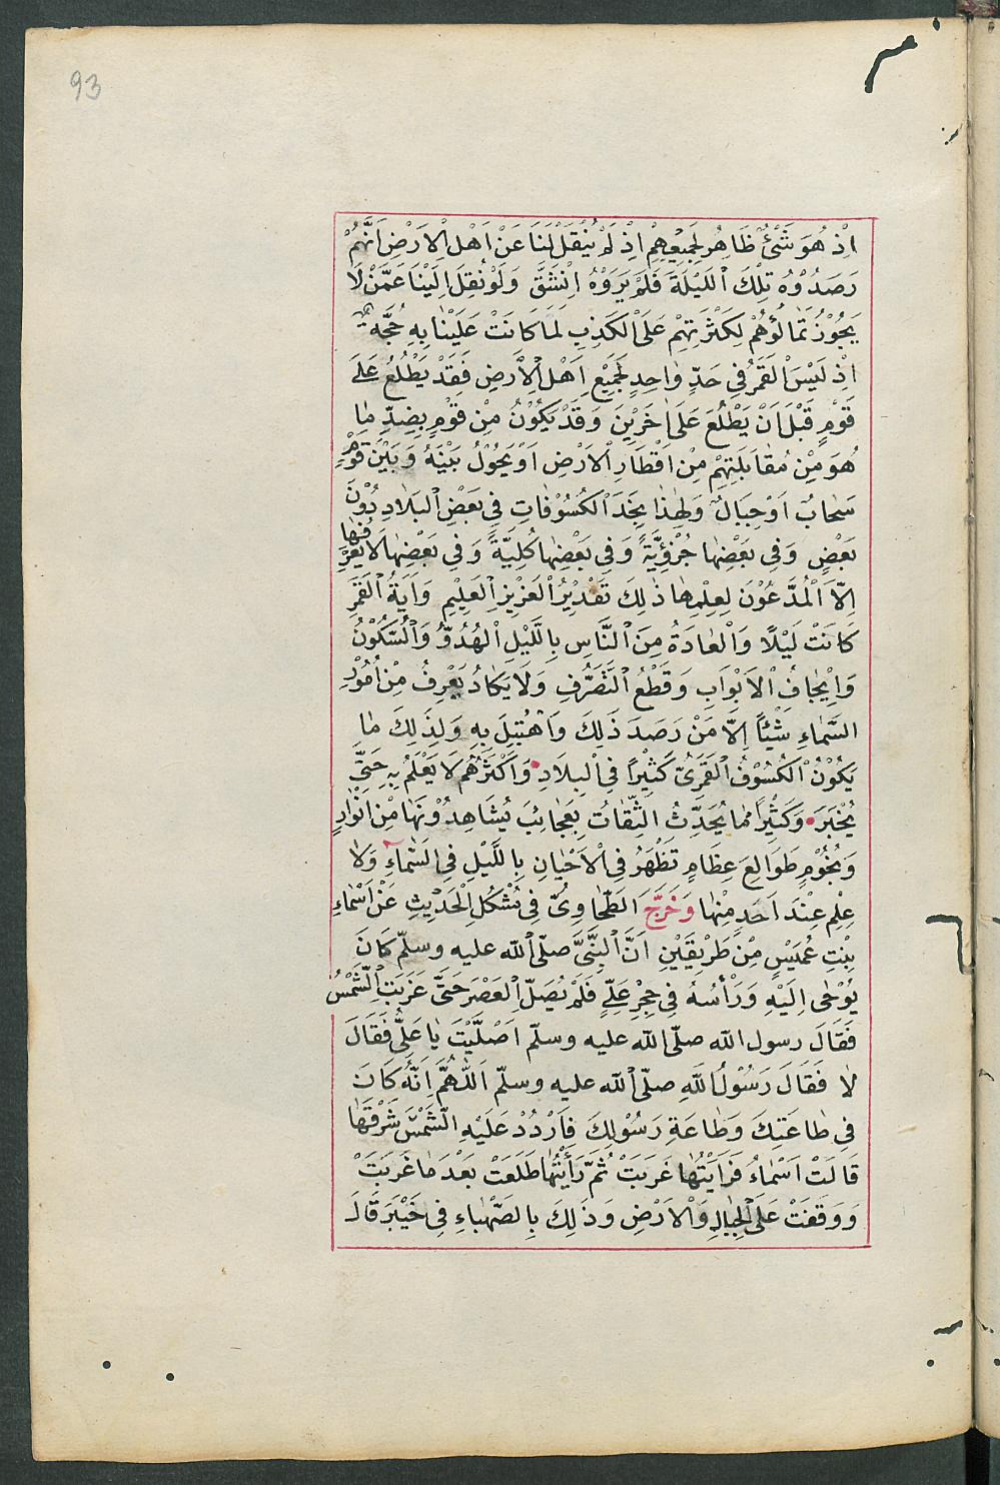 93
اِذْ هُوَ شَئٌْ ظَاهِرٌ لِجَمِيْعِهِمْ اِذْ لَمْ يُنْقَلْ لَنَا عَنْ اَهْلِ الْاَرْضِ اَنَّهُمْ
رَصَدُوْهُ تِلْكَ الْلَيْلَةَ فَلَمْ يَرَوْهُ اِنْشَقَّ وَلَوْ نُقِلَ اِلَيْنَا عَمَّنْ لَا
يَجُوْزُ تَمَالُؤُهُمْ لِكَثْرَتِهِمْ عَلَى الْكَذِبِ لَمَا كَانَتْ عَلَيْنَا بِهِ حُجَّةٌ
اِذْ لَيْسَ الْقَمَرُ فِي حَدٍّ وَاحِدٍ لِجَمِيْعِ اَهْلِ الْاَرْضِ فَقَدْ يَطْلُعُ عَلَى
قَوْمٍ قَبْلَ اَنْ يَطْلُعَ عَلَى اٰخَرِيْنَ وَقَدْ يَكُوْنُ مِنْ قَوْمٍ بِضِدِّ مَا
هُوَ مِنْ مُقَابَلَتِهِمْ مِنْ اَقْطَارِ الْاَرْضِ اَوْ يَحُوْلُ بَيْنَهُ وَبَيْنَ قَوْمٍ
سَحَابٌ اَوْ جِبَالٌ وَلِهٰذَا نَجِدُ الْكُسُوْفَاتِ فِي بَعْضِ الْبِلَادِ دُوْنَ
بَعْضٍ وَفِي بَعْضِهَا جُزْئِيَّةً وَفِي بَعْضِهَا كُلِّيَّةً وَفِي بَعْضِهَا لَا يَعْرِفُهَا
اِلَّا الْمُدَّعُوْنَ لِعِلْمِهَا ذٰلِكَ تَقْدِيْرُ الْعَزِيْزِ الْعَلِيْمِ وَاٰيَةُ الْقَمَرِ
كَانَتْ لَيْلًا وَالْعَادَةُ مِنَ النَّاسِ بِالْلَيْلِ الْهُدُوُّ وَالسُّكُوْنُ
وَاِيْجَافُ الْاَبْوَابِ وَقَطْعُ التَّصَرُّفِ وَلَا يَكَادُ يَعْرِفُ مِنْ اُمُوْرِ
السَّمَاءِ شَيْئًا اِلَّا مَنْ رَصَدَ ذٰلِكَ وَاهْتَبَلَ بِهِ وَلِذٰلِكَ مَا
يَكُوْنُ الْكُسُوْفُ الْقَمَرِيُّ كَثِيْرًا فِي الْبِلَادِ وَاَكْثَرُهُمْ لَا يَعْلَمُ بِهِ حَتّٰى
يُخْبَرَ وَكَثِيْرًا مَا يُحَدِّثُ الثِّقَاتُ بِعَجَائِبَ يُشَاهِدُوْنَهَا مِنْ اَنْوَارٍ
وَنُجُوْمٍ طَوَالِعَ عِظَامٍ تَظْهَرُ فِي الْاَحْيَانِ بِالْلَيْلِ فِي السَّمَاءِ وَلَا
عِلْمَ عِنْدَ اَحَدٍ مِنْهَا وَخَرَّجَ الطَّحَاوِيُّ فِي مُشْكِلِ الْحَدِيْثِ عَنْ اَسْمَاءَ
بِنْتِ عُمَيْسٍ مِنْ طَرِيْقَيْنِ اَنَّ النَّبِيَّ صلّى الله عليه وسلّم كَانَ
يُوْحٰى اِلَيْهِ وَرَأْسُهُ فِي حِجْرِ عَلِيٍّ فَلَمْ يُصَلِّ الْعَصْرَ حَتّٰى غَرَبَتِ الشَّمْسُ
فَقَالَ رسول الله صلّى الله عليه وسلّم اَصَلَّيْتَ يَا عَلِيُّ فَقَالَ
لَا فَقَالَ رَسُوْلُ اللّٰهِ صلّى الله عليه وسلّم اَللّٰهُمَّ اِنَّهُ كَانَ
فِي طَاعَتِكَ وَطَاعَةِ رَسُوْلِكَ فَارْدُدْ عَلَيْهِ الشَّمْسَ شَرْقَهَا
قَالَتْ اَسْمَاءُ فَرَاَيْتُهَا غَرَبَتْ ثُمَّ رَأَيْتُهَا طَلَعَتْ بَعْدَ مَا غَرَبَتْ
وَوَقَفَتْ عَلَى الْجِبَالِ وَالْاَرْضِ وَذٰلِكَ بِالصَّهْبَاءِ فِي خَيْبَرَ قَالَ